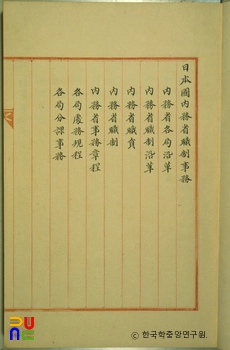 日本國內務省職制事務
內務省各局沿革
內務省職制沿革
內務省職員
內務省職制
內務省事務章程
各局處務規程
各局分課事務
© 한국학중앙연구원.